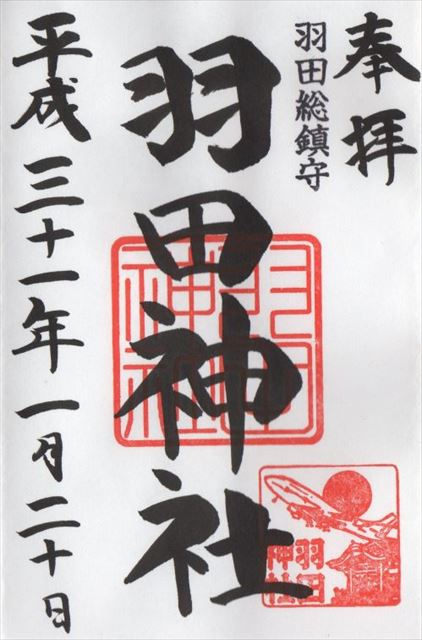 奉拝
羽田総鎮守
羽田神社
羽田神社
羽田
神社
平成三十一年一月二十日